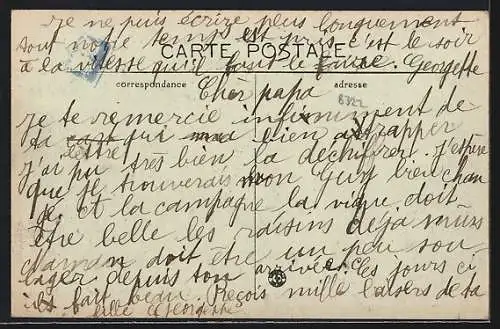 je ne puis écrire plus longuement
tout notre temps est pris c'est le soir
CARTE POSTALE
à la vitesse qu'il faut le faire. Georgette
correspondance
adresse
Cher papa
6322
je te remercie infiniment de
ta cart qui m'a bien attrapper
lettre
j'ai pu très bien la déchiffrer. J'espère
que je trouverais mon Guy bien chan
gé et la campagne la vigne doit
être belle les raisins déjà murs
maman doit être un peu sou
lager depuis ton arrivée. Ces jours ci
il fait beau. Reçois mille baisers de ta
fille Georgette